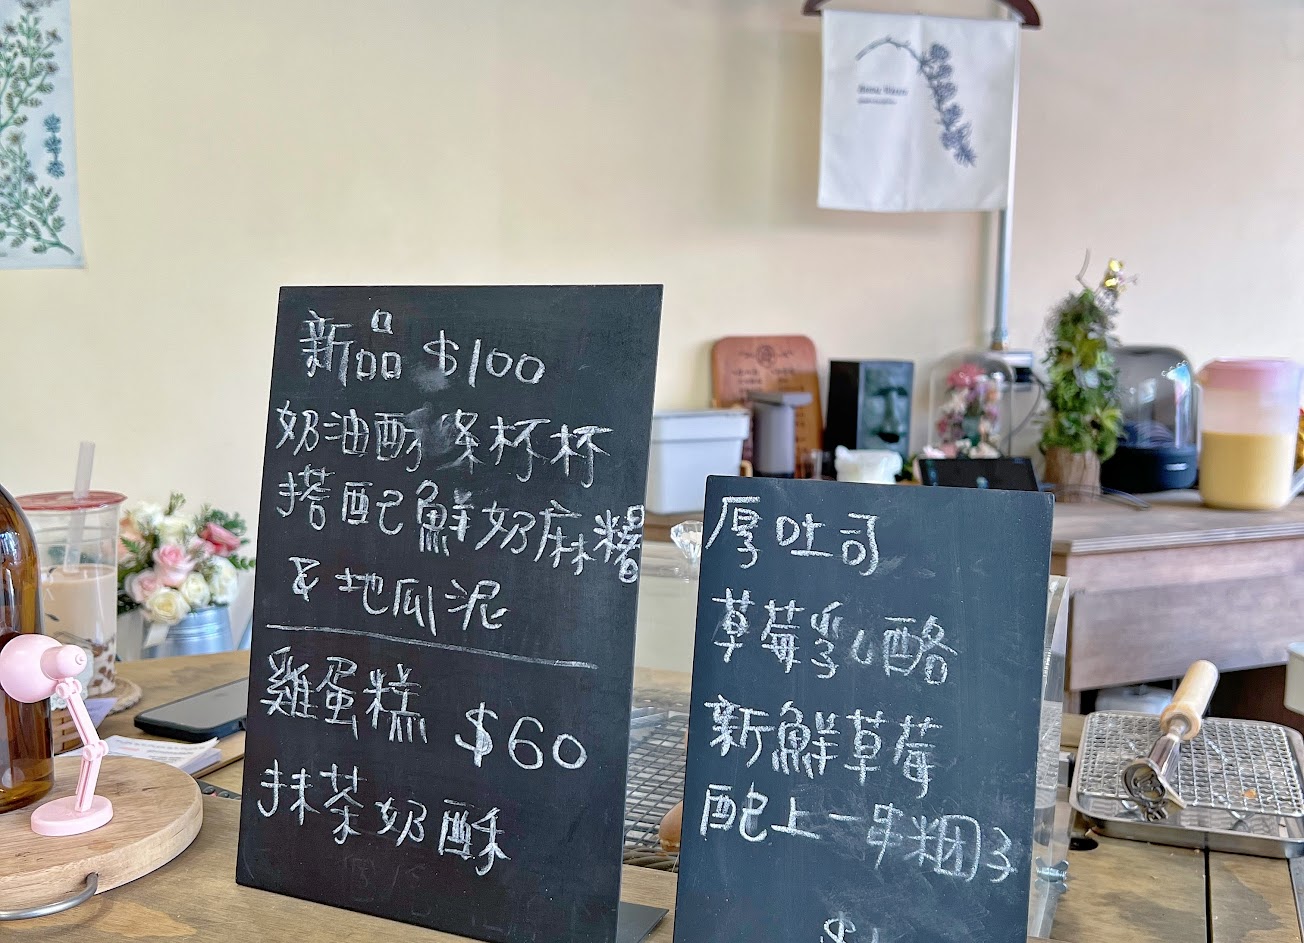 新品 $100
奶油酥条杯杯
搭配鮮奶麻糬
&地瓜泥
雞蛋糕 $60
抹茶奶酥
厚吐司
草莓乳酪
新鮮草莓
配上一串糰子